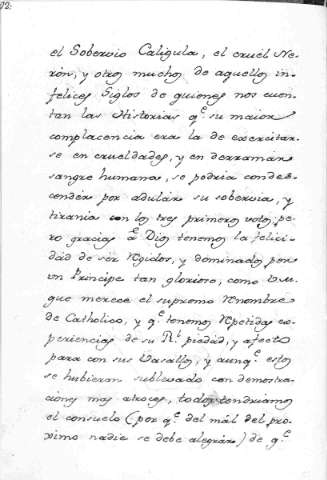 92.
el Sobervio Caligula, el cruel Ne-
ron, y otros muchos de aquellos in-
felices Siglos de quienes nos cuen-
tan las Historias q.e su maior
complacencia era la de exercitar-
se en crueldades, y en derramar
sangre humana, se podria condes-
cender por adular su sobervia, y
tirania con los tres primeros votos; pe-
ro gracias à Dios tenemos la felici-
dad de ser Regidos, y dominados por
un Principe tan glorioso, como V.M.
que merece el supremo Renombre
de Catholico, y q.e tenemos Repetidas ex-
periencias de su R.l piedad, y afecto
para con sus Vasallos, y aunq.e estos
se hubieran sublevado con demostra-
ciones mas atroces, todos tendriamos
el consuelo (por q.e del mál del pro-
ximo nadie se debe alegrar) de q.e